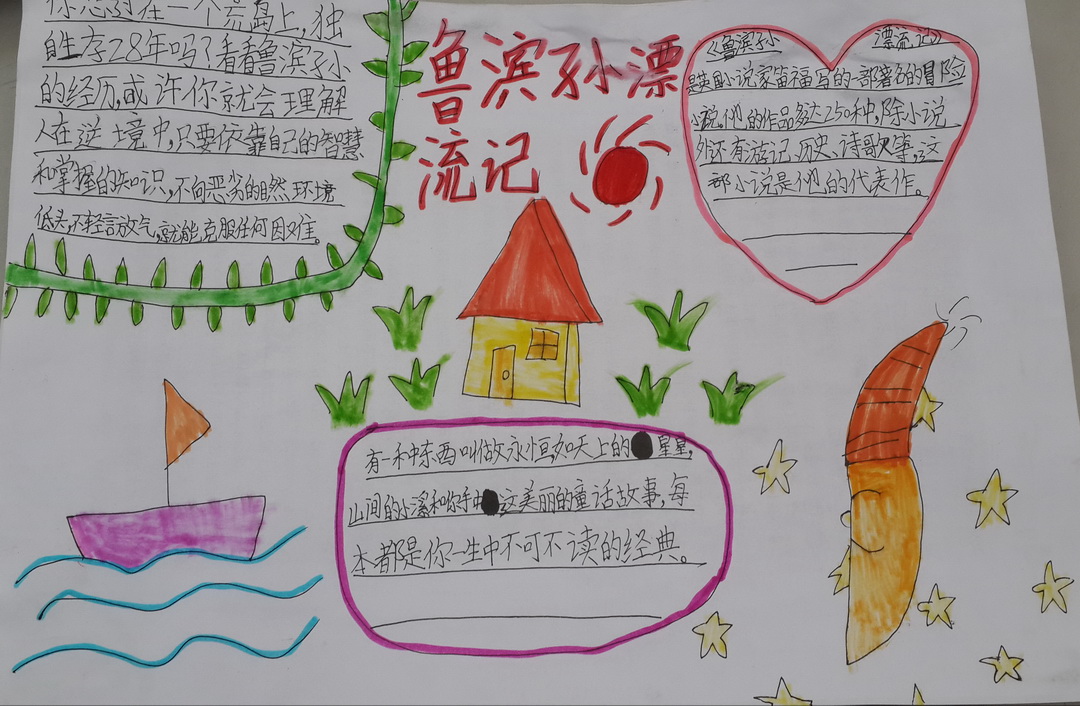 你想过在一个荒岛上,独
自生存28年吗?看看鲁滨孙
的经历,或许你就会理解
人在逆境中,只要依靠自己的智慧
和掌握的知识,不向恶劣的自然环境
低头,不轻言放气,就能克服任何困难。
鲁滨孙漂
流记
《鲁滨孙 漂流记》
是英国小说家笛福写的一部著名的冒险
小说,他的作品多达250种,除小说
外还有游记、历史、诗歌等,这
部小说是他的代表作。
有一种东西叫做永恒,如天上的星星,
山间的小溪和你手中这美丽的童话故事,每
本都是你一生中不可不读的经典。